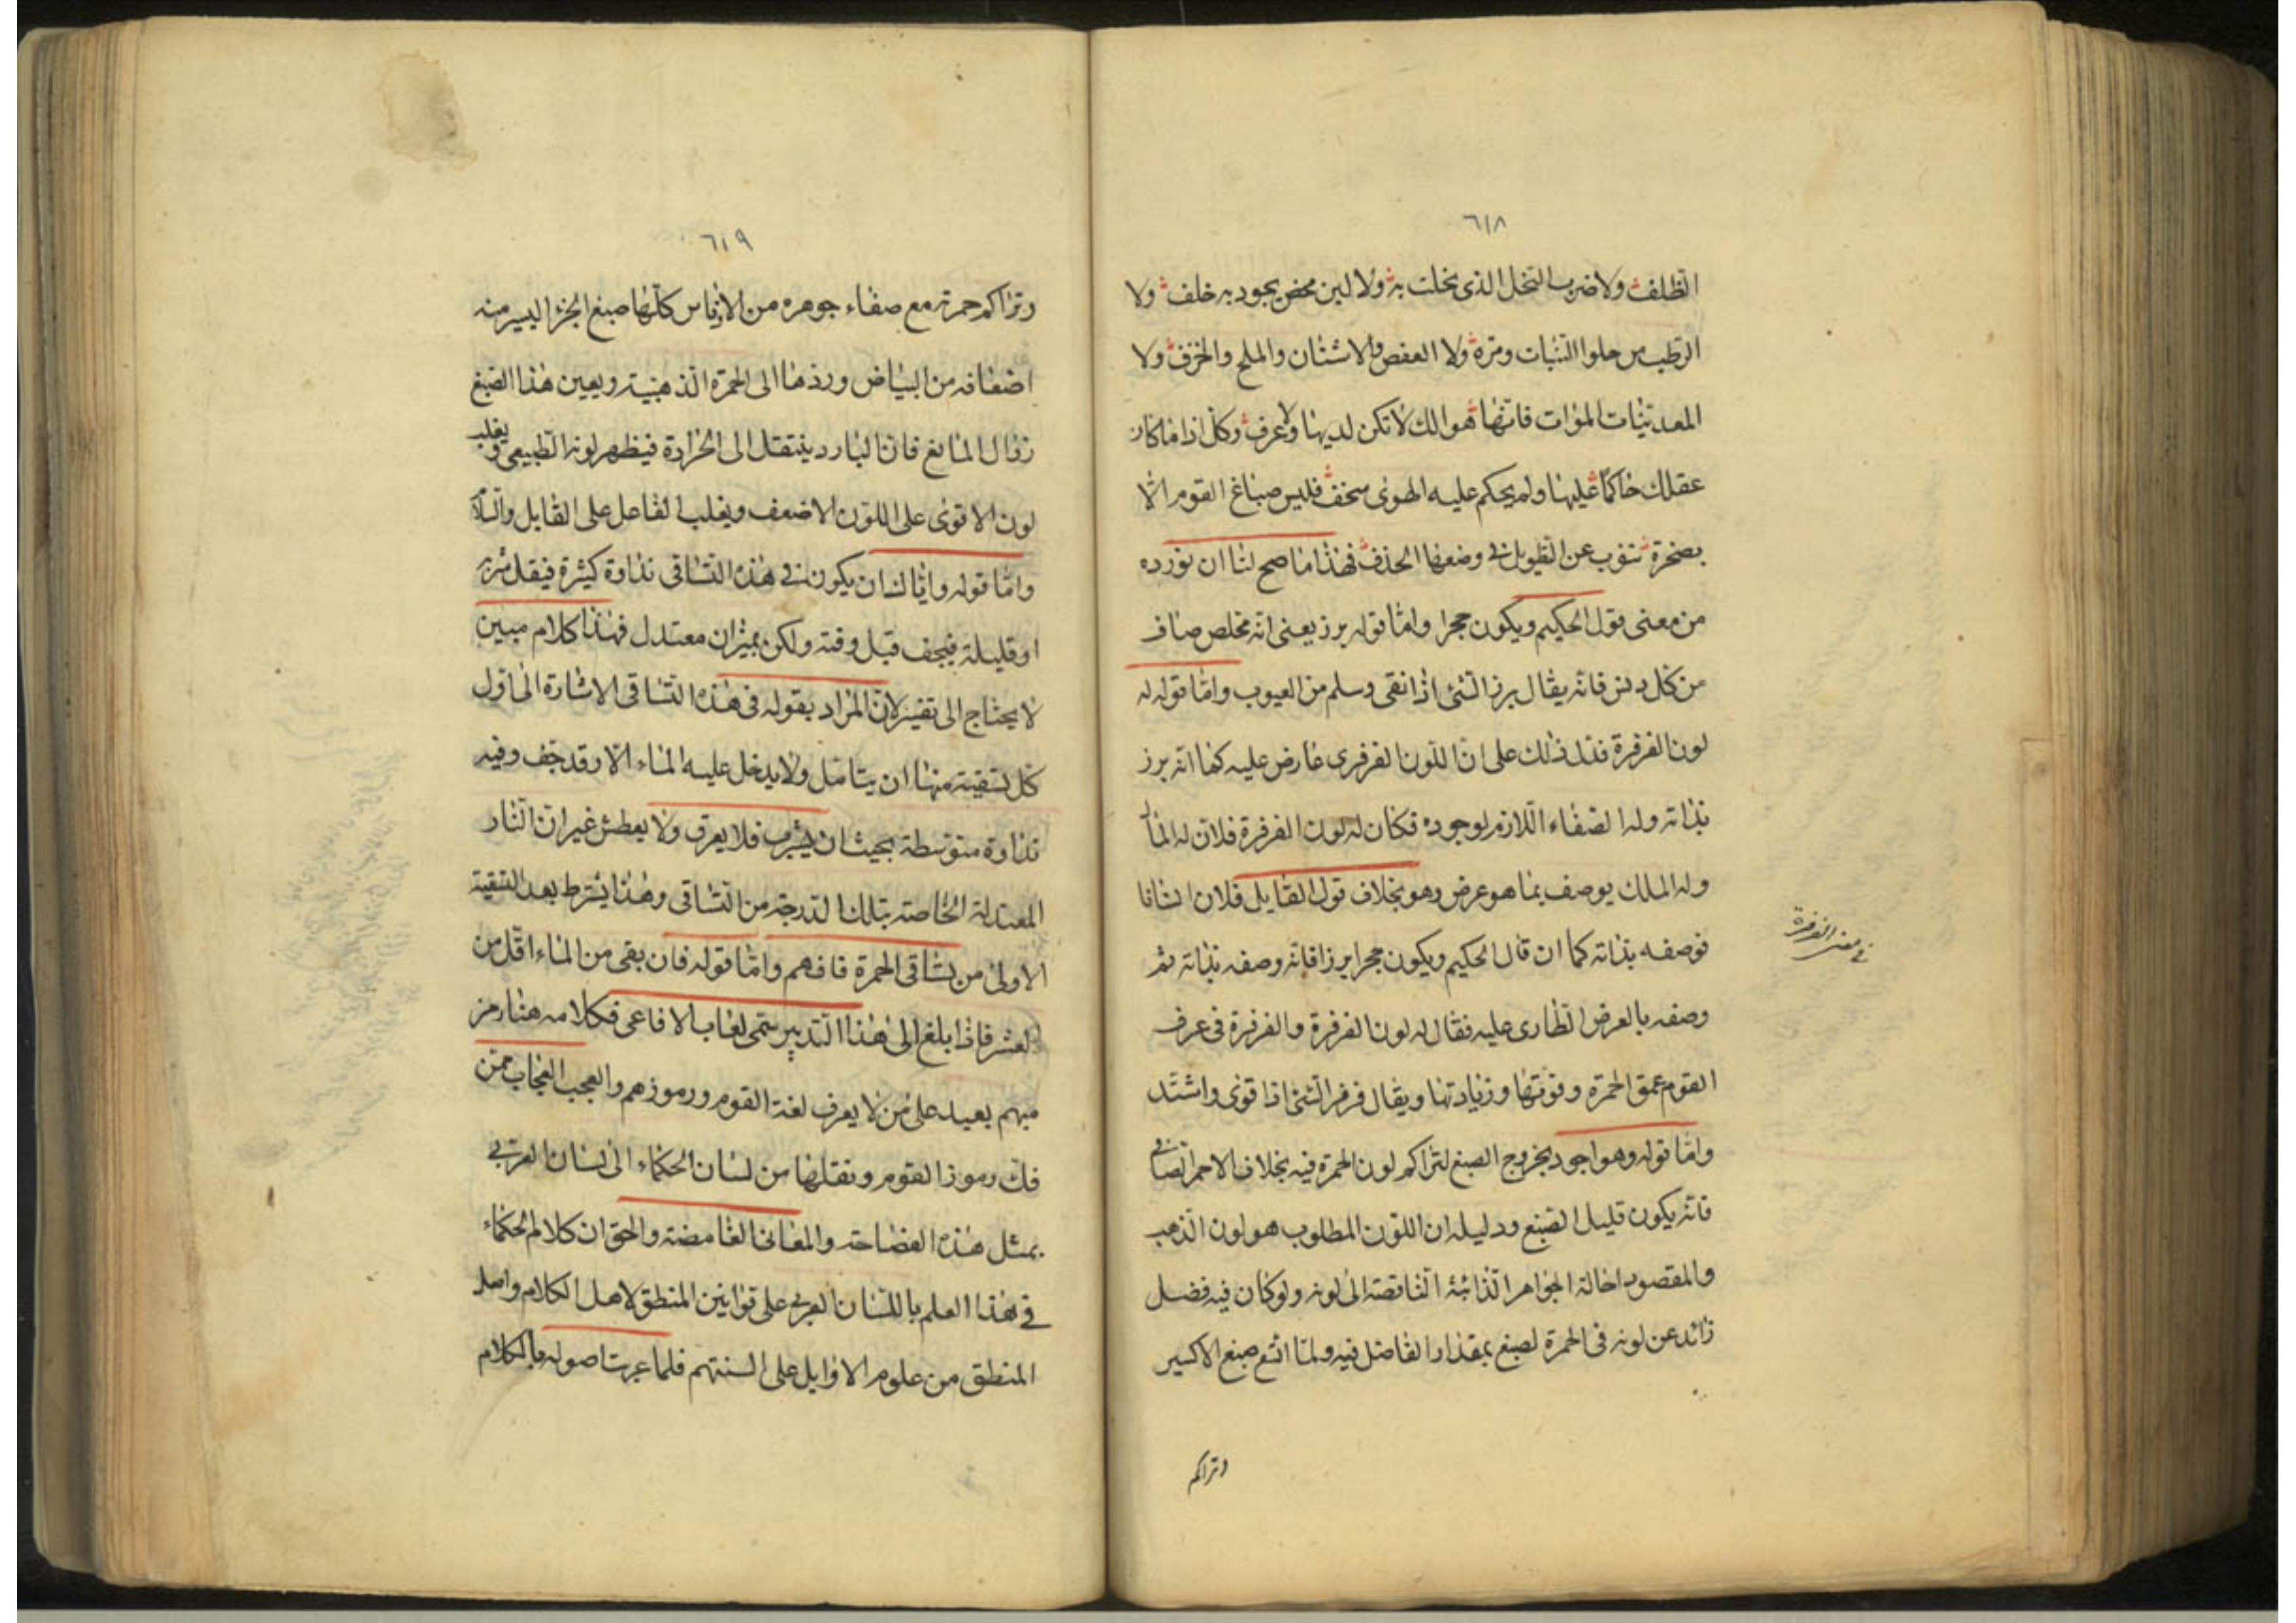 ٦١٨
الظلف ولا ضرب النخل الذى نخلت به ولا لبن محض يجود به خلف ولا
الرطب من حلوا النبات ومره ولا العفص والاشنان والملح والخزف ولا
المعدنيات الموات فانها هوالك لا تكن لديها ولا عرف وكل اذا ما كان
عقلك حاكما عليها ولم يحكم عليه الهوى سخف فليس صباغ القوم الا
بصخرة تنوب عن التطويل فى وضعها الحذف فهذا ما صح لنا ان نورده
من معنى قول الحكيم ويكون حجرا واما قوله برز يعنى انه مخلص صاف
من كل دنس فانه يقال برز الشئ اذا نقى وسلم من العيوب واما قوله له
لون الفرفرة فذلك ذلك على ان اللون الفرفرى عارض عليه كما انه برز
بذاته وله الصفاء اللازم لوجوده فكان له لون الفرفرة فلان له المال
وله الملك يوصف بما هو عرض وهو بخلاف قول القايل فلان انسانا
فوصفه بذاته كما ان قال الحكيم ويكون حجرا برزا فانه وصفه بذاته ثم
وصفه بالعرض الطارى عليه فقال له لون الفرفرة والفرفرة فى عرف
القوم عمق الحمرة وقوتها وزيادتها ويقال فرفر الشئ اذا قوى واشتد
واما قوله وهو اجود بخروج الصبغ لتراكم لون الحمرة فيه بخلاف الاحمر الصافى
فانه يكون قليل الصبغ ودليله ان اللون المطلوب هو لون الذهب
والمقصود احالة الجواهر الذائبة الناقصة الى لونه ولو كان فيه فضل
زائد عن لونه فى الحمرة لصبغ بمقدار الفاضل فيه ولما اتسع صبغ الاكسير
وتراكم
فى معنى الفرفرة
٦١٩
وتراكم حمرته مع صفاء جوهره من الادناس كلها صبغ الجزء اليسير منه
اضعافه من البياض وردها الى الحمرة الذهبية ويعين هذا الصبغ
زوال المانع فان البارد ينتقل الى الحرارة فيظهر لونه الطبيعى ويغلب
لون الاقوى على اللون الاضعف ويغلب الفاعل على القابل والسلام
واما قوله واياك ان يكون فى هذه التساقى نداوة كثيرة فيقل شربه
او قليلة فيجف قبل وقته ولكن بميزان معتدل فهذا كلام مبين
لا يحتاج الى تفسير لان المراد بقوله فى هذه التساقى الاشارة الى اول
كل تسقية منها ان يتامل ولا يدخل عليه الماء الا وقد جف وفيه
نداوة متوسطة بحيث ان يشرب فلا يعرق ولا يعطش غير ان النار
المعتدلة الخاصة بتلك الدرجة من التساقى وهذا يشترط بعد التسقية
الاولى من تساقى الحمرة فافهم واما قوله فان بقى من الماء اقل من
العشر فاذا بلغ الى هذا التدبير يسمى لعاب الافاعى فكلامه هنا رمز
مبهم بعيد على من لا يعرف لغة القوم ورموزهم والعجب العجاب ممن
فك رموز القوم ونقلها من لسان الحكماء الى لسان العربى
بمثل هذه الفصاحة والمعانى الغامضة والحق ان كلام الحكماء
فى هذا العلم باللسان العربى على قوانين المنطق لاهل الكلام واصل
المنطق من علوم الاوايل على السنتهم فلما عربت اصوله بالكلام